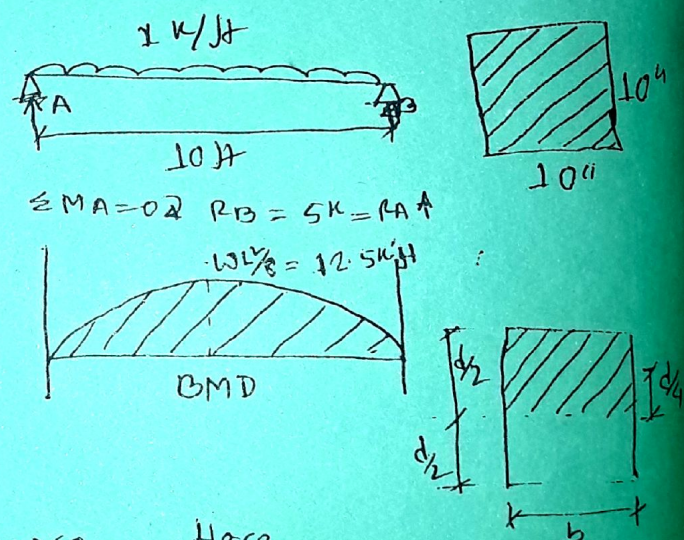 1 k/ft
A
B
10 ft
10"
10"
ΣMA=0 RB = 5K = RA ↑
WL²/8 = 12.5 K'ft
BMD
d/2
d/4
d/2
b
Here